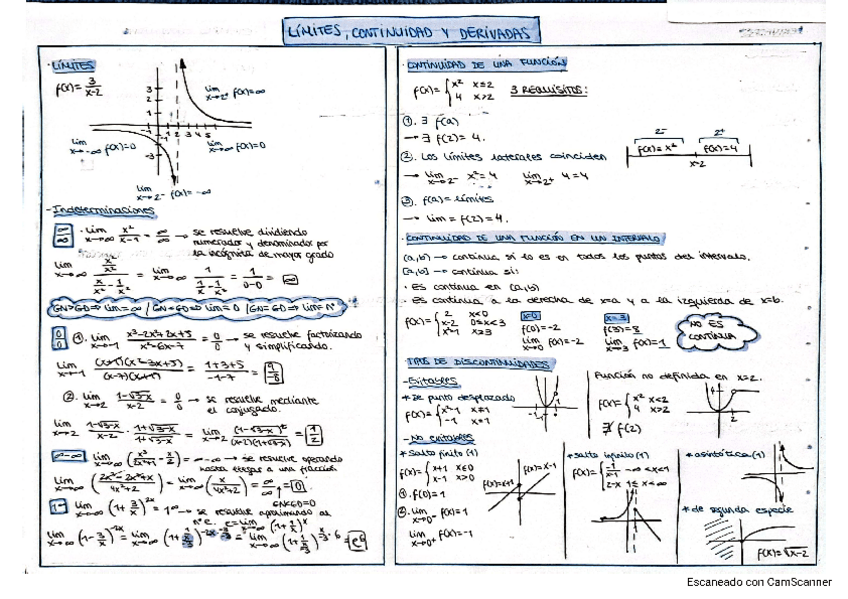 LÍMITES, CONTINUIDAD Y DERIVADAS
· LÍMITES
f(x) = 3/x-2
lim x→2+ f(x)=∞
lim x→-∞ f(x)=0
lim x→∞ f(x)=0
lim x→2- f(x)=-∞
- Indeterminaciones
∞/∞ · lim x→∞ x²/x-1 = ∞/∞ → se resuelve dividiendo
numerador y denominador por
la incógnita de mayor grado
GN>GD ⇒ lim=∞ / GN<GD ⇒ lim=0 / GN=GD ⇒ lim=nº
0/0 ①. lim x→-1 x³-2x²+2x+5/x²-6x-7 = 0/0 → se resuelve factorizando
y simplificando.
lim x→-1 (x+1)(x²-3x+5)/(x-7)(x+1) = 1+3+5/-1-7 =
②. lim x→2 1-√3-x/x-2 = 0/0 → se resuelve mediante
el conjugado.
lim x→2 1-√3-x/x-2 · 1+√3-x/1+√3-x = lim x→2 = 1/2
∞-∞ = ∞-∞ → se resuelve operando
hasta llegar a una fracción
= ∞/∞ = 0
GN<GD=0
lim x→∞ (1+3/x)^2x = 1^∞ → se resuelve aproximando al
nº e.
· CONTINUIDAD DE UNA FUNCIÓN
f(x)= { x² x≤2
4 x>2
3 REQUISITOS:
①. ∃ f(a)
→ ∃ f(2) = 4.
②. Los límites laterales coinciden
→ lim x→2- x²=4 lim x→2+ 4=4
2- 2+
f(x)=x² f(x)=4
x=2
③. f(a) = límites
→ lim = f(2) = 4.
· CONTINUIDAD DE UNA FUNCIÓN EN UN INTERVALO
(a,b) → continua si lo es en todos los puntos del intervalo.
[a,b] → continua si:
· Es continua en (a,b)
· Es continua a la derecha de x=a y a la izquierda de x=b.
f(x)= { 2 x<0
x-2 0≤x<3
x²-1 x≥3
x=0
f(0)=-2
lim x→0 f(x)=-2
x=3
f(3)=8
lim x→3 f(x)=1
NO ES
CONTINUA
TIPOS DE DISCONTINUIDADES
- Evitables
* De punto desplazado
f(x)= { x²-1 x≠1
-1 x=1
Función no definida en x=2.
f(x)= { x² x<2
4 x>2
∄ f(2)
- No evitables
* Salto finito (1)
f(x)= { x+1 x≤0
x-1 x>0
①. f(0)=1
②. lim x→0- f(x)=1
lim x→0+ f(x)=-1
f(x)=x+1
f(x)=x-1
* Salto infinito (1)
* asintótica (1)
* de segunda especie
f(x)=√x-2
Escaneado con CamScanner